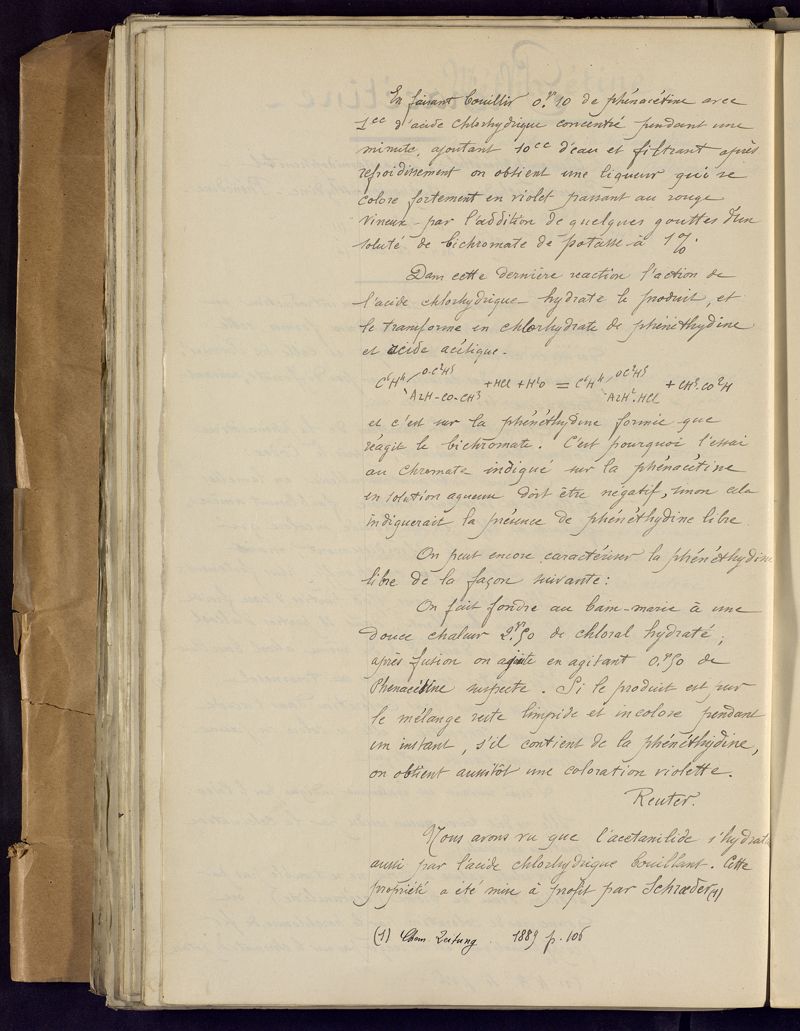 En faisant bouillir 0.gr 10 de phénacétine avec
1cc d'acide chlorhydrique concentré pendant une
minute, ajoutant 10cc d'eau et filtrant après
refroidissement on obtient une liqueur qui se
colore fortement en violet passant au rouge
vineux par l'addition de quelques gouttes d'un
soluté de bichromate de potasse à 1 %.
Dans cette dernière reaction l'action de
l'acide chlorhydrique hydrate le produit, et
le transforme en chlorhydrate de phénéthydine
et acide acétique.
C⁶H⁴ O.C²H⁵ AzH-CO-CH³ + HCl + H²O = C⁶H⁴ OC²H⁵ AzH².HCl + CH³.CO²H
et c'est sur la phénéthydine formée que
réagit le bichromate. C'est pourquoi l'essai
au chromate indiqué sur la phénacétine
en solution aqueuse doit être négatif, sinon cela
indiquerait la présence de phénéthydine libre
On peut encore caractériser la phénéthydine
libre de la façon suivante :
On fait fondre au bain-marie à une
douce chaleur 2.gr 50 de chloral hydraté ;
après fusion on ajoute en agitant 0.gr 50 de
Phenacétine suspecte. Si le produit est pur
le mélange reste limpide et incolore pendant
un instant, s'il contient de la phénéthydine,
on obtient aussitôt une coloration violette.
Reuter.
Nous avons vu que l'acetanilide s'hydrate
aussi par l'acide chlorhydrique bouillant. Cette
propriété a été mise à profit par Schrœder (1)
(1) Chem Zeitung. 1889 p. 106